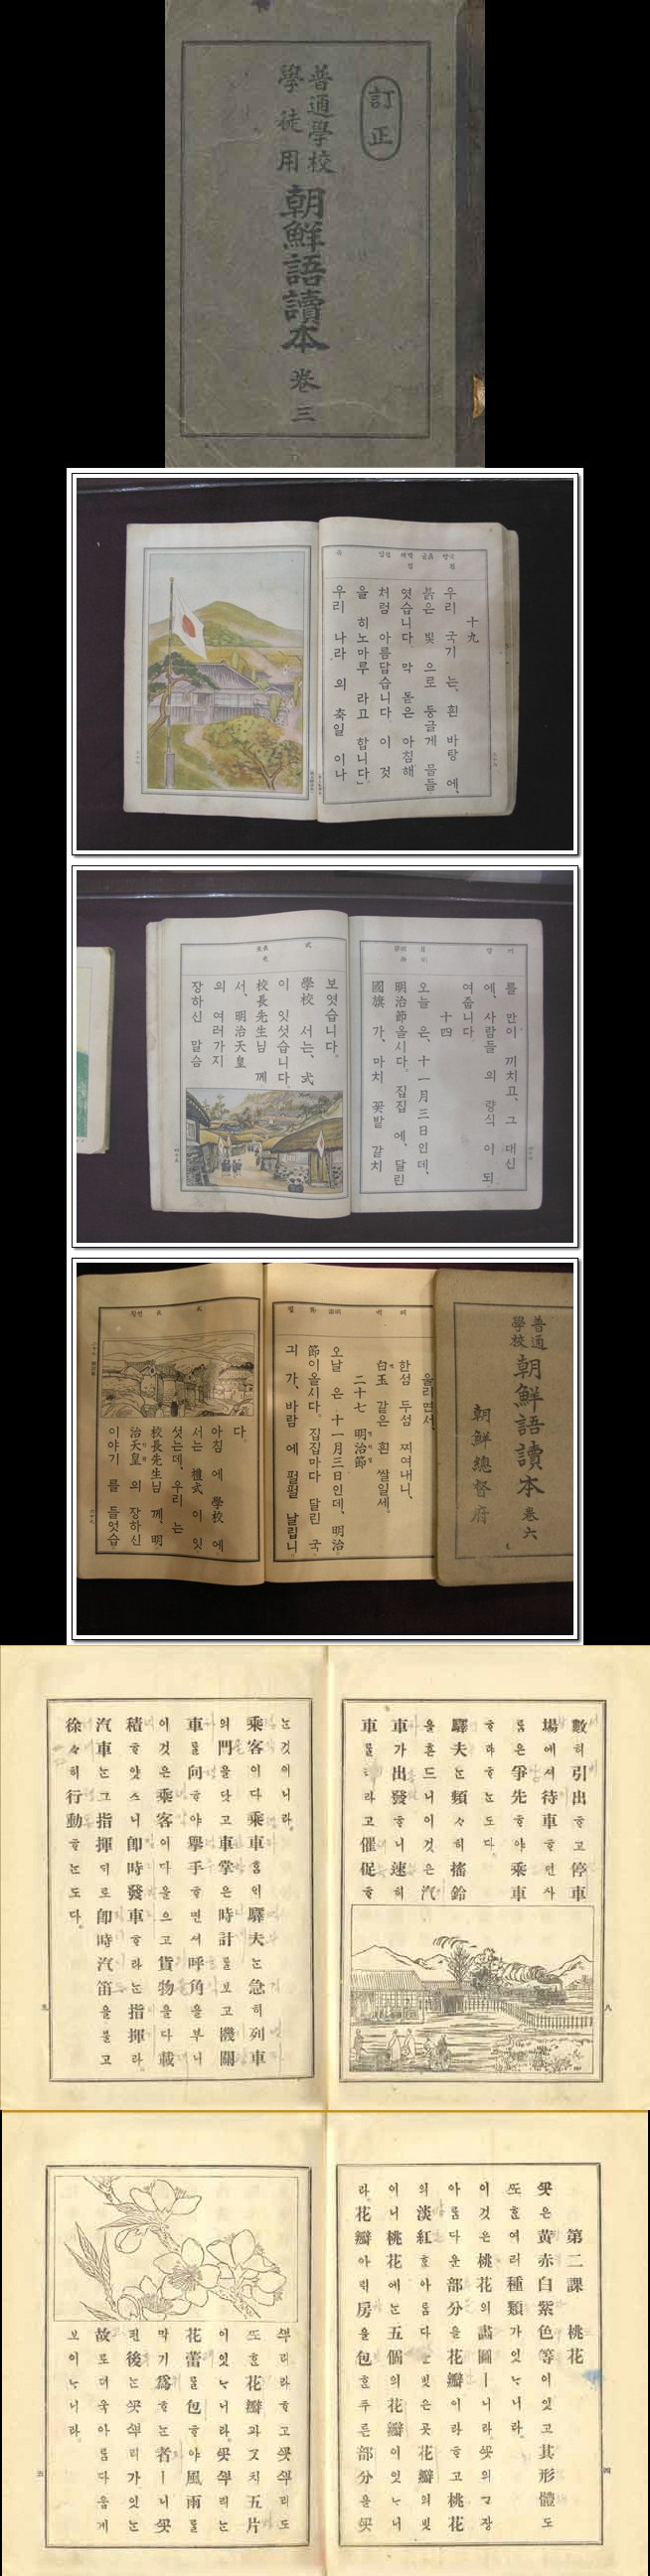 訂正
普通學校
學徒用
朝鮮語讀本
卷三
十九
우리 국기 는, 흰 바탕 에,
붉은 빛 으로 둥글게 물들
엿습니다. 막 돋은 아침해
처럼 아름답습니다. 이 것
을 히노마루 라고 합니다」
우리 나라 의 축일 이나
를 만이 끼치고, 그 대신
에, 사람들 의 량식 이 되
여줍니다.
十四
오늘 은, 十一月三日인데,
明治節올시다. 집집 에, 달린
國旗 가, 마치 꽃밭 갈치
보엿습니다.
學校 서는, 式
이 잇섯습니다.
校長先生님 께
서, 明治天皇
의 여러가지
장하신 말슴
울리면서,
한섬 두섬 찌여내니,
白玉 같은 흰 쌀일세.
二十七 明治節
오날 은 十一月三日인데, 明治
節이올시다. 집집마다 달린 국
긔 가, 바람 에 펄펄 날립니
다.
아침 에 學校 에
서는 禮式 이 잇
섯는데, 우리 는
校長先生님 께, 明
治天皇 의 장하신
이야기 를 들엇습
普通
學校
朝鮮語讀本 卷六
朝鮮總督府
數히引出ᄒᆞ고停車
場에셔待車ᄒᆞ던사
ᄅᆞᆷ은爭先ᄒᆞ야乘車
ᄒᆞ라ᄒᆞᄂᆞᆫ도다.
驛夫ᄂᆞᆫ頻々히搖鈴
을흔드니이것은汽
車가出發ᄒᆞ니速히
車를ᄐᆞ라고催促ᄒᆞ
八
ᄂᆞᆫ것이니라.
乘客이다乘車ᄒᆞᆷᄋᆡ驛夫ᄂᆞᆫ急히列車
의門을닷고車掌은時計를보고機關
車를向ᄒᆞ야擧手ᄒᆞ면셔呼角을부니
이것은乘客이다올으고貨物을다載
積ᄒᆞ얏스니卽時發車ᄒᆞ라ᄂᆞᆫ指揮라.
汽車ᄂᆞᆫ그指揮ᄃᆡ로卽時汽笛을불고
徐々히行動ᄒᆞᄂᆞᆫ도다.
九
第二課 桃花
ᄭᅩᆺ은黃赤白紫色等이잇고其形體도
ᄯᅩᄒᆞᆫ여러種類가잇ᄂᆞ니라.
이것은桃花의畵圖ㅣ니라.ᄭᅩᆺ의ᄀᆞ장
아ᄅᆞᆷ다운部分을花瓣이라ᄒᆞ고桃花
의淡紅ᄒᆞᆫ아ᄅᆞᆷ다ᄂᆞᆫ빗은곳花瓣의빗
이니桃花에ᄂᆞᆫ五個의花瓣이잇ᄂᆞ니
라.花瓣아ᄅᆡ房을包ᄒᆞᆫ푸른部分을ᄭᅩᆺ
四
ᄲᅮ리라ᄒᆞ고ᄭᅩᆺᄲᅮ리도
ᄯᅩᄒᆞᆫ花瓣과ᄀᆞᆺ치五片
이잇ᄂᆞ니라.ᄭᅩᆺᄲᅮ리ᄂᆞᆫ
花蕾를包ᄒᆞ야風雨를
막기爲ᄒᆞᄂᆞᆫ者ㅣ니ᄭᅩᆺ
핀後ᄂᆞᆫᄭᅩᆺᄲᅮ리가잇ᄂᆞᆫ
故로더욱아ᄅᆞᆷ다옵게
보이ᄂᆞ니라.
五